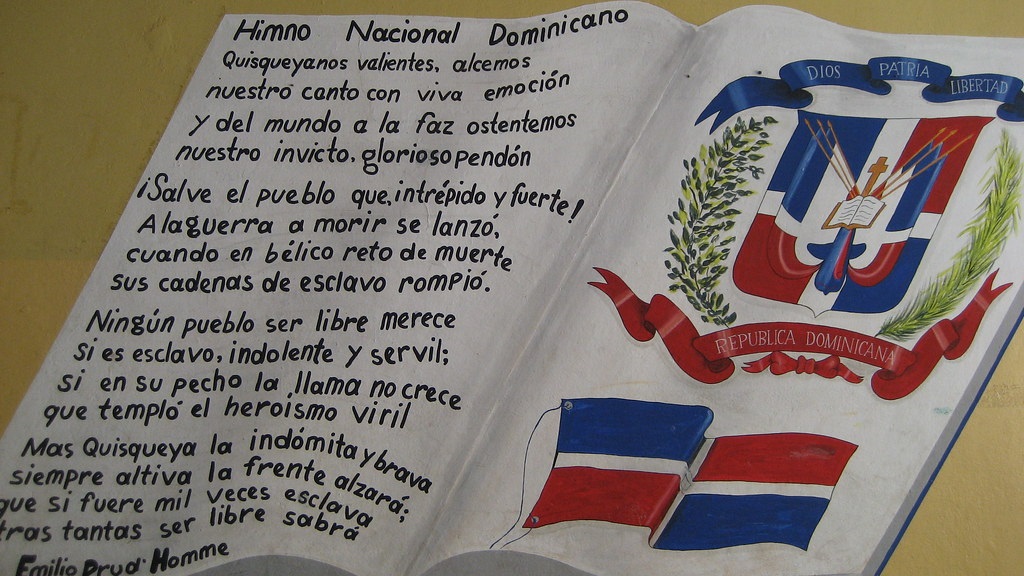 Himno Nacional Dominicano
Quisqueyanos valientes, alcemos
nuestro canto con viva emoción
y del mundo a la faz ostentemos
nuestro invicto. glorioso pendón
¡Salve el pueblo que, intrépido y fuerte!
A laguerra a morir se lanzó,
cuando en bélico reto de muerte
sus cadenas de esclavo rompió.
Ningún pueblo ser libre merece
si es esclavo, indolente y servil;
si en su pecho la llama no crece
que templó el heroismo viril
Mas Quisqueya la indómita y brava
siempre altiva la frente alzará;
que si fuere mil veces esclava
tras tantas ser libre sabrá
Emilio Prud' Homme
DIOS PATRIA LIBERTAD
REPUBLICA DOMINICANA